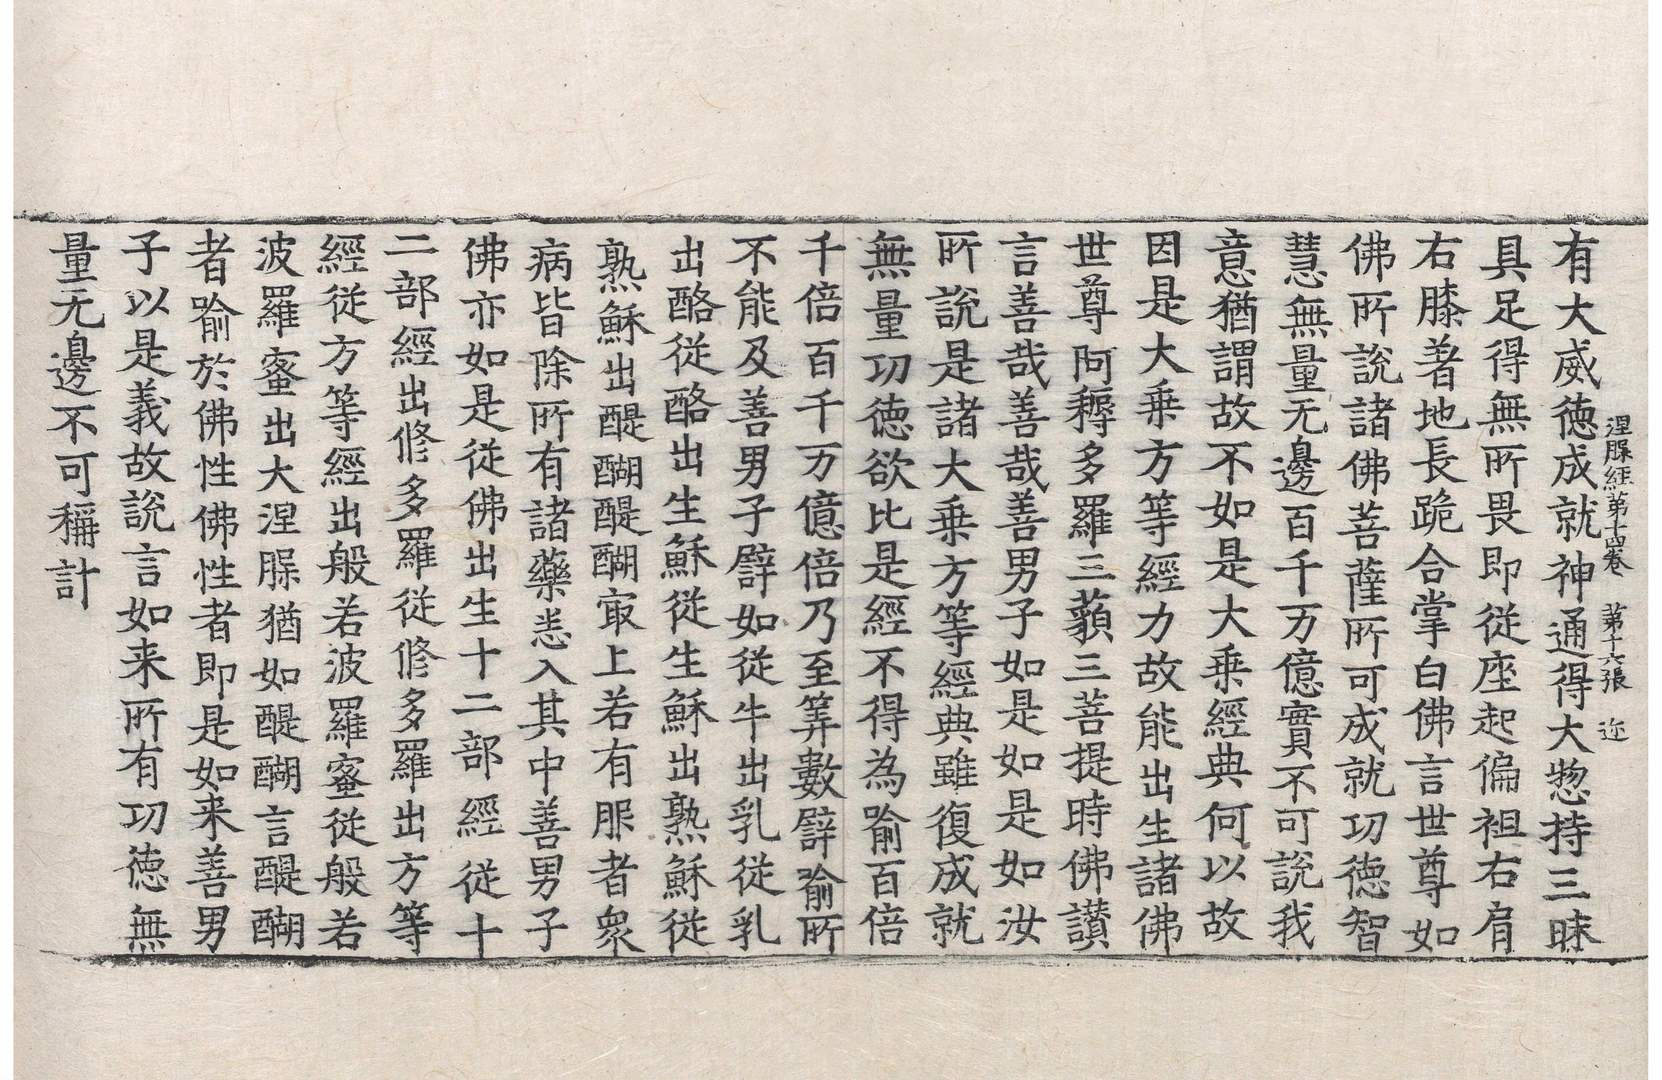 涅槃經第十四卷 第十六張 迩
有大威徳成就神通得大惣持三昧
具足得無所畏即從座起偏袒右肩
右膝著地長跪合掌白佛言世尊如
佛所說諸佛菩薩所可成就功徳智
慧無量无邊百千万億實不可說我
意猶謂故不如是大乗經典何以故
因是大乗方等經力故能出生諸佛
世尊阿耨多羅三藐三菩提時佛讃
言善哉善哉善男子如是如是如汝
所說是諸大乗方等經典雖復成就
無量功徳欲比是經不得為喻百倍
千倍百千万億倍乃至筭數譬喻所
不能及善男子譬如從牛出乳從乳
出酪從酪出生穌從生穌出熟穌從
熟穌出醍醐醍醐冣上若有服者衆
病皆除所有諸藥悉入其中善男子
佛亦如是從佛出生十二部經從十
二部經出修多羅從修多羅出方等
經從方等經出般若波羅蜜從般若
波羅蜜出大涅槃猶如醍醐言醍醐
者喻於佛性佛性者即是如来善男
子以是義故說言如来所有功徳無
量无邊不可稱計